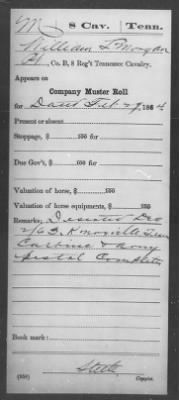 M 8 Cav. Tenn.
William L Morgan
, Co. B, 8 Reg't Tennessee Cavalry.
Appears on
Company Muster Roll
for Dated Feb 29, 1864
Present or absent
Stoppage, $ 100 for
Due Gov't, $ 100 for
Valuation of horse, $ 100
Valuation of horse equipments, $ 100
Remarks: Deserted Dec
2/63 Knoxville Tenn
Carbine & army
pistol Complete
Book mark:
(358) Copyist.